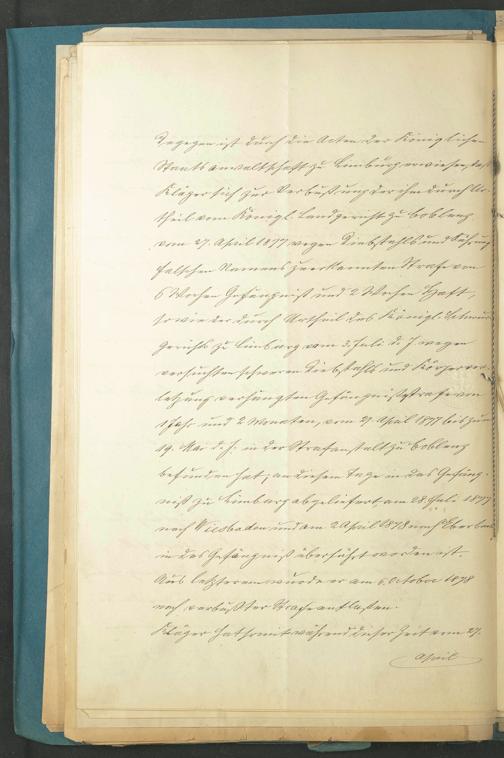 Dagegen ist durch die Acten der Königlichen
Staatsanwaltschaft zu Limburg erwiesen, daß
Kläger sich zur Verbüßung der ihm durch Ur-
theil vom Königl. Landgericht zu Coblenz
vom 27. April 1877 wegen Diebstahls und Führung
falschen Namens zuerkannten Strafe von
6 Wochen Gefängniß und 2 Wochen Haft,
sowie der durch Urtheil des Königl.
Gerichts zu Limburg vom 3. Juli d. J. wegen
versuchten schweren Diebstahls und Körperver-
letzung verhängten Gefängnißstrafe von
1 Jahr und 2 Monaten, vom 27. April 1877 bis zum
19. Mai d. J. in der Strafanstalt zu Coblenz
befunden hat, an diesem Tage in das Gefäng-
niß zu Limburg abgeliefert, am 28. Juli 1877
nach Wiesbaden und am 2 April 1878 nach Eberbach
in das Gefängniß überführt worden ist.
Aus letzterem wurde er am 6 October 1878
nach verbüßter Strafe entlassen.
Kläger hat somit während dieser Zeit vom 27.
April